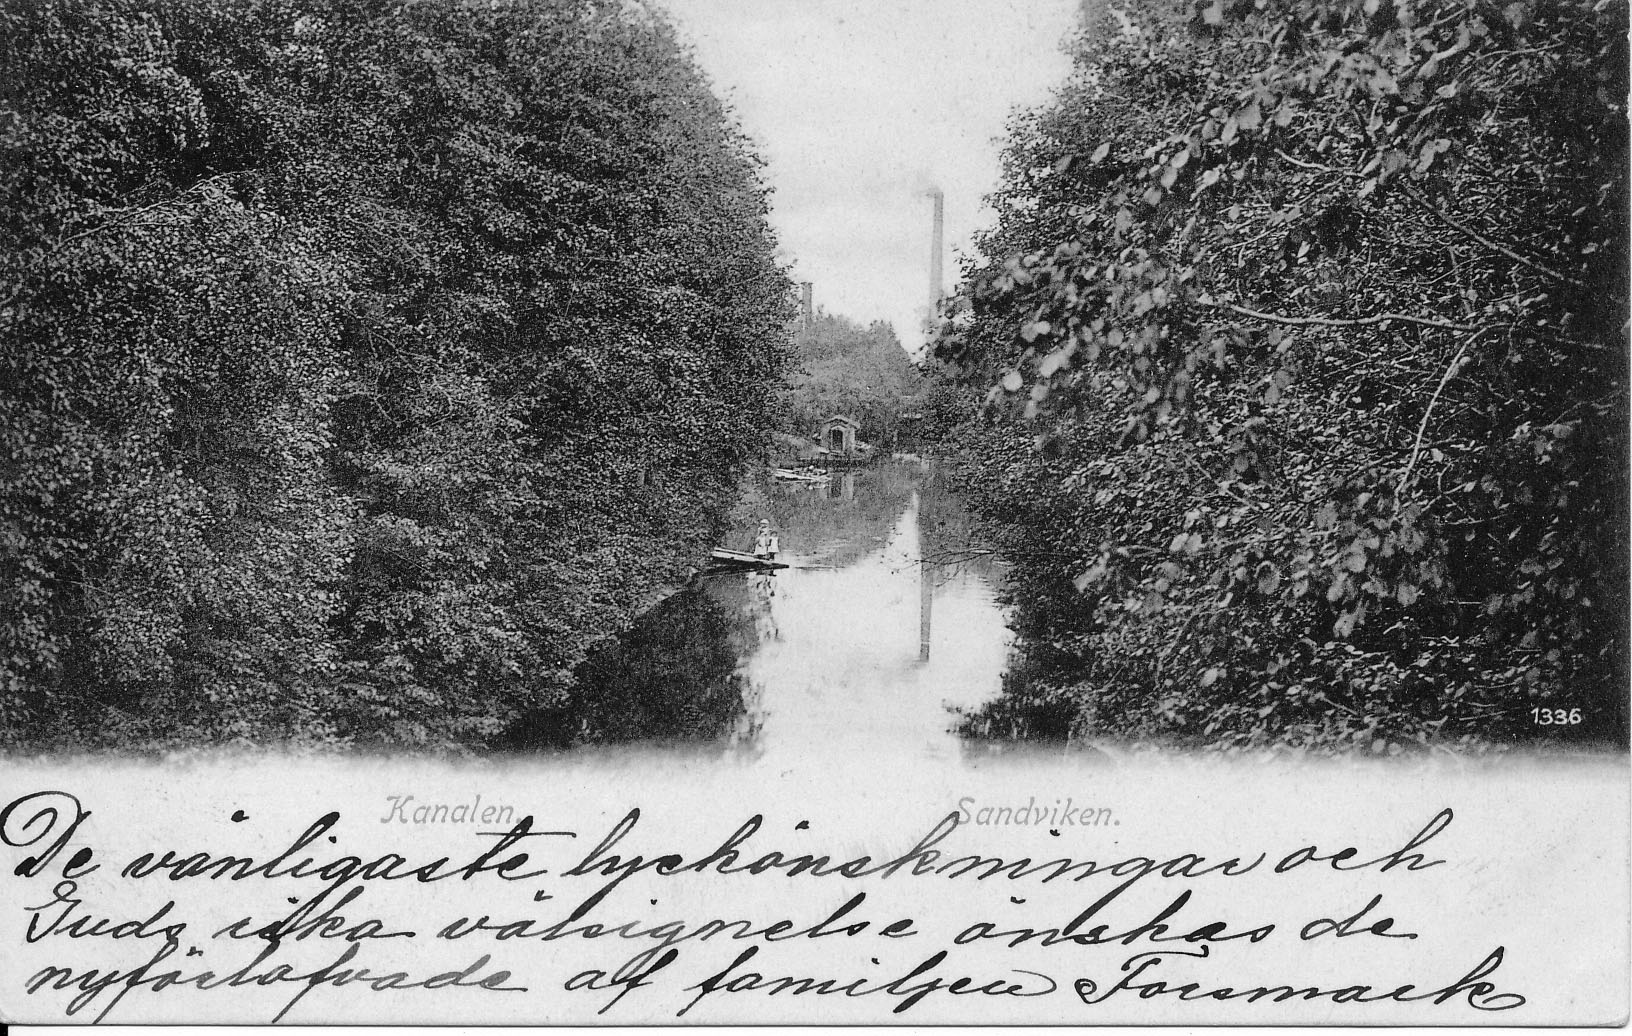 1336
Kanalen. Sandviken.
De vänligaste lyckönskningar och
Guds rika välsignelse önskas de
nyförlofvade af familjen Forsmark